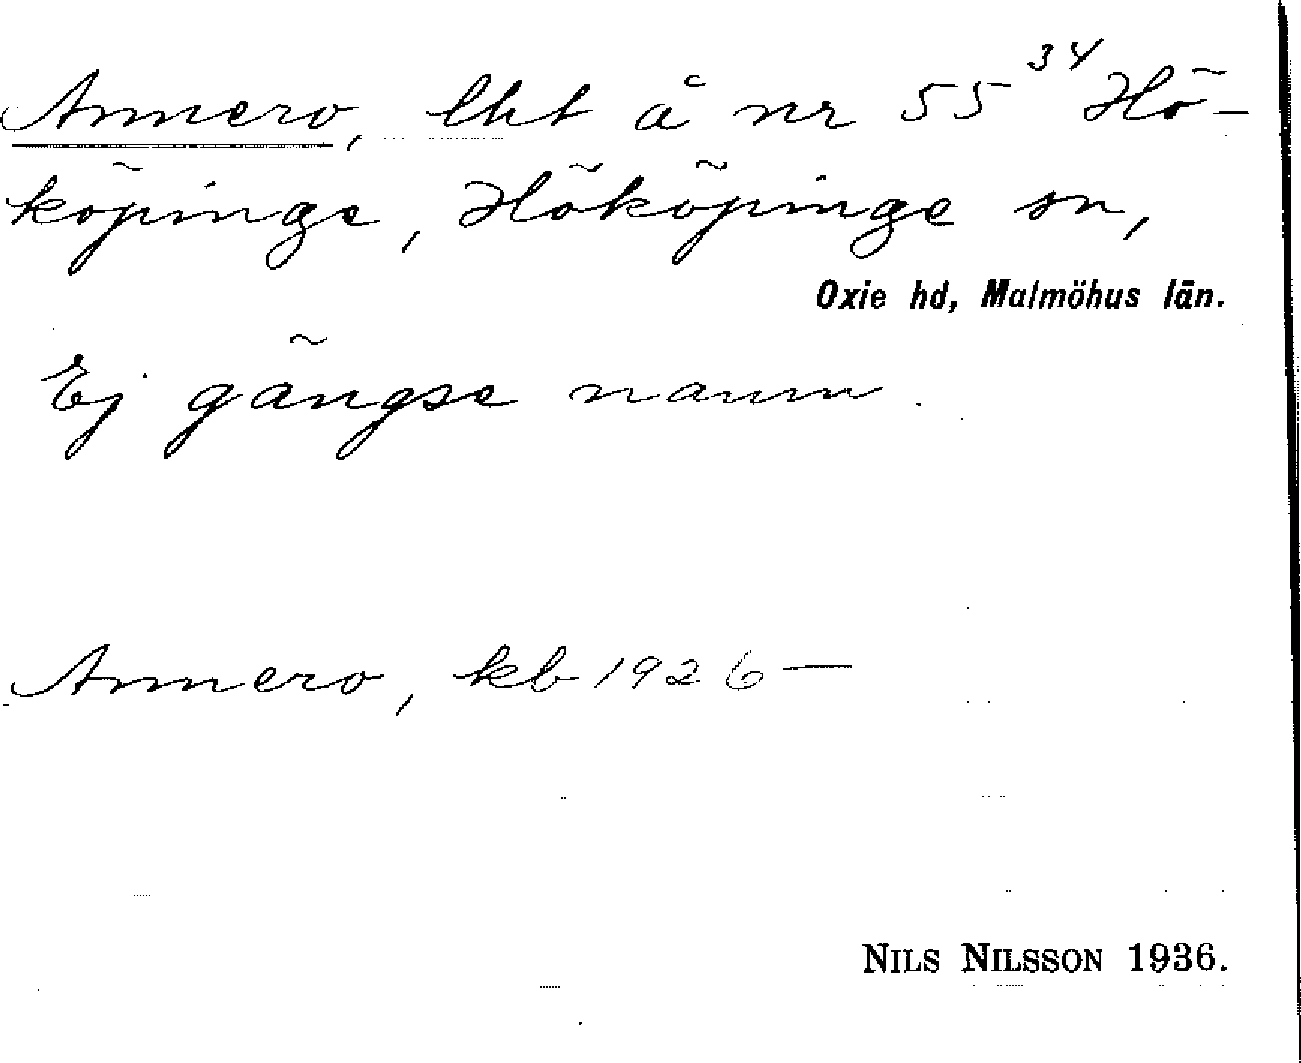 Annero, lht å nr 55³⁴ Hö-
köpinge, Hököpinge sn,
Oxie hd, Malmöhus län.
Ej gängse namn.
Annero, kb 1926—
NILS NILSSON 1936.